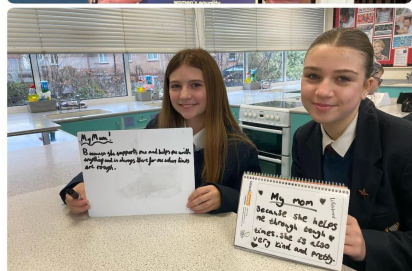 women's equality
My Mom!
Because she supports me and helps me with
anything and is always there for me when times
are rough.
My mom
Because she helps
me through tough
times. She is also
very kind and pretty.